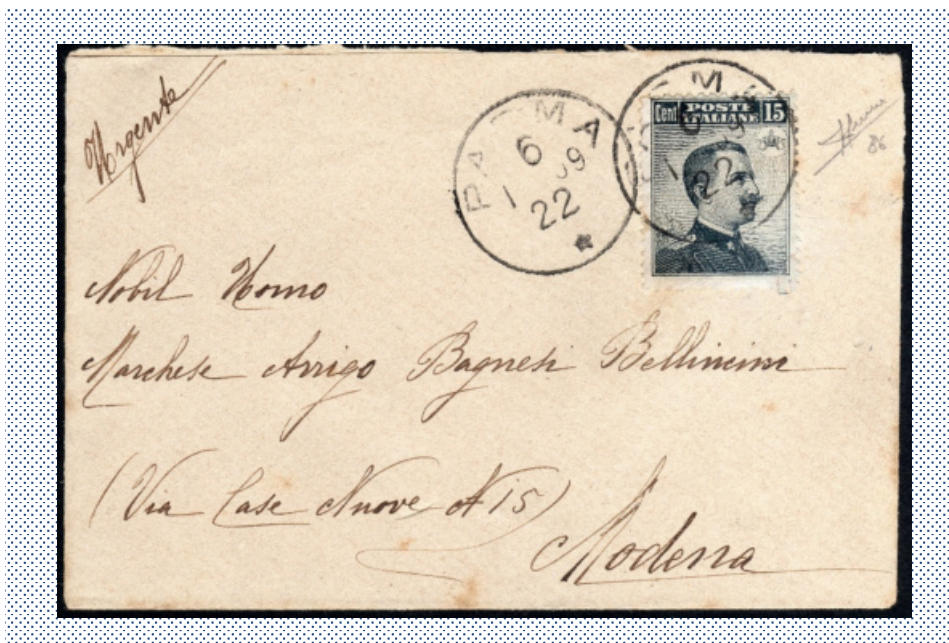 Urgente
PARMA
6
1 09
22
Cent POSTE ITALIANE 15
86
Nobil Homo
Marchese Arrigo Bagnesi Bellincini
(Via Case Nuove N 15)
Modena